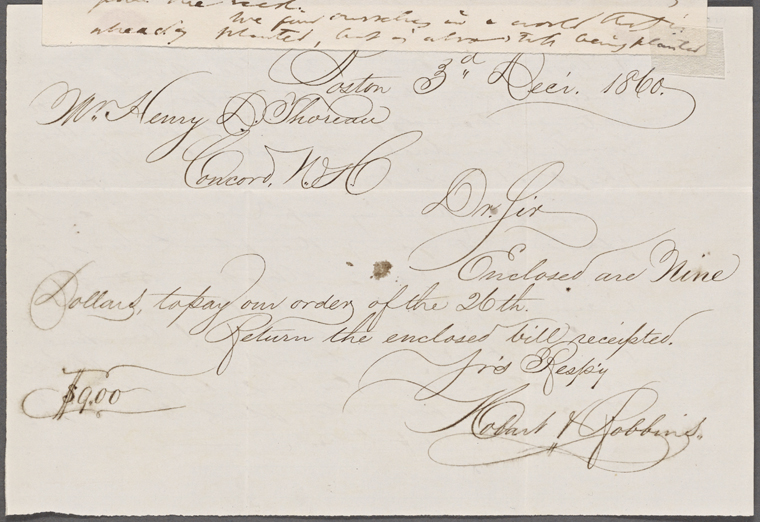 We find ourselves in a world that is
already planted, but is also still being planted
Boston 3d Decr. 1860.
Mr. Henry D. Thoreau
Concord, N.H.
Dr. Sir
Enclosed are Nine
Dollars, to pay our order of the 26th.
Return the enclosed bill receipted.
Yrs Resp'y
$9.00
Hobart & Robbins.